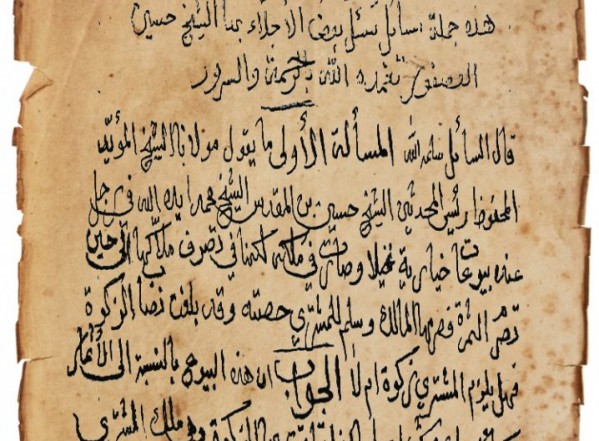 هذه جملة مسائل سئل بعض الأجلاء بها الشيخ حسين
العصفور تغمده الله بالرحمة والسرور
قال السائل سلمه الله المسألة الأولى ما يقول مولانا الشيخ المؤيد
المحفوظ رئيس المحدثين الشيخ حسين بن المقدس الشيخ محمد ايده الله في رجل
عنده بيوعات خيارية نخيلا وصارت في ملكه لكنها في تصرف ملاكها الى حين
تصرم الثمرة فصرمها المالك وسلم للمشتري حصته وقد بلغت نصاب الزكوة
فهل يلزم المشتري زكوة ام لا الجواب ان هذه البيوع بالنسبة الى الأثمار
الزكوة وفي ملك المشتري